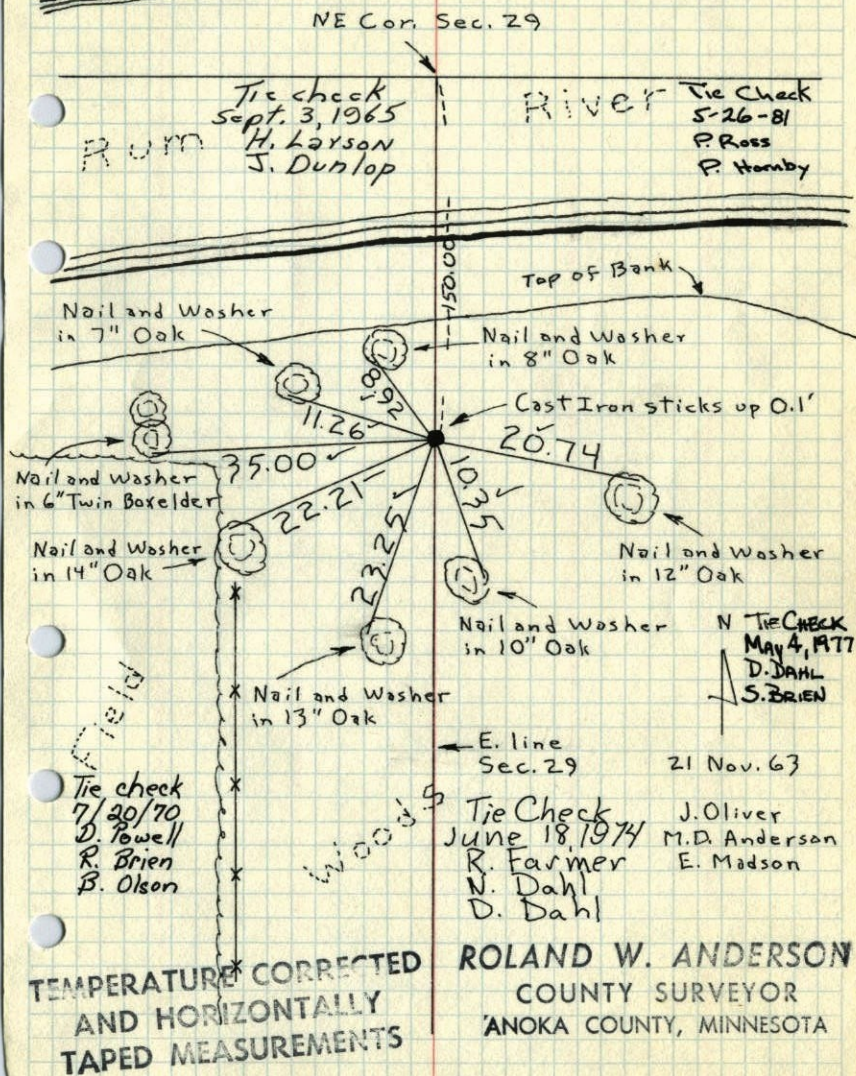 NE Cor. Sec. 29
Tie check
Sept. 3, 1965
H. Larson
J. Dunlop
Rum
River
Tie Check
5-26-81
P. Ross
P. Hornby
150.00
Top of Bank
Nail and Washer
in 7" Oak
Nail and Washer
in 8" Oak
8.92
11.26
Cast Iron sticks up 0.1'
20.74
35.00
Nail and Washer
in 6" Twin Boxelder
22.21
10.35
23.25
Nail and Washer
in 14" Oak
Nail and Washer
in 12" Oak
Nail and Washer
in 10" Oak
N
TIE CHECK
May 4, 1977
D. DAHL
S. BRIEN
Nail and Washer
in 13" Oak
Field
E. line
Sec. 29
21 Nov. 63
Tie check
7/20/70
D. Powell
R. Brien
B. Olson
Woods
Tie Check
June 18, 1974
R. Farmer
N. Dahl
D. Dahl
J. Oliver
M.D. Anderson
E. Madson
TEMPERATURE CORRECTED
AND HORIZONTALLY
TAPED MEASUREMENTS
ROLAND W. ANDERSON
COUNTY SURVEYOR
ANOKA COUNTY, MINNESOTA